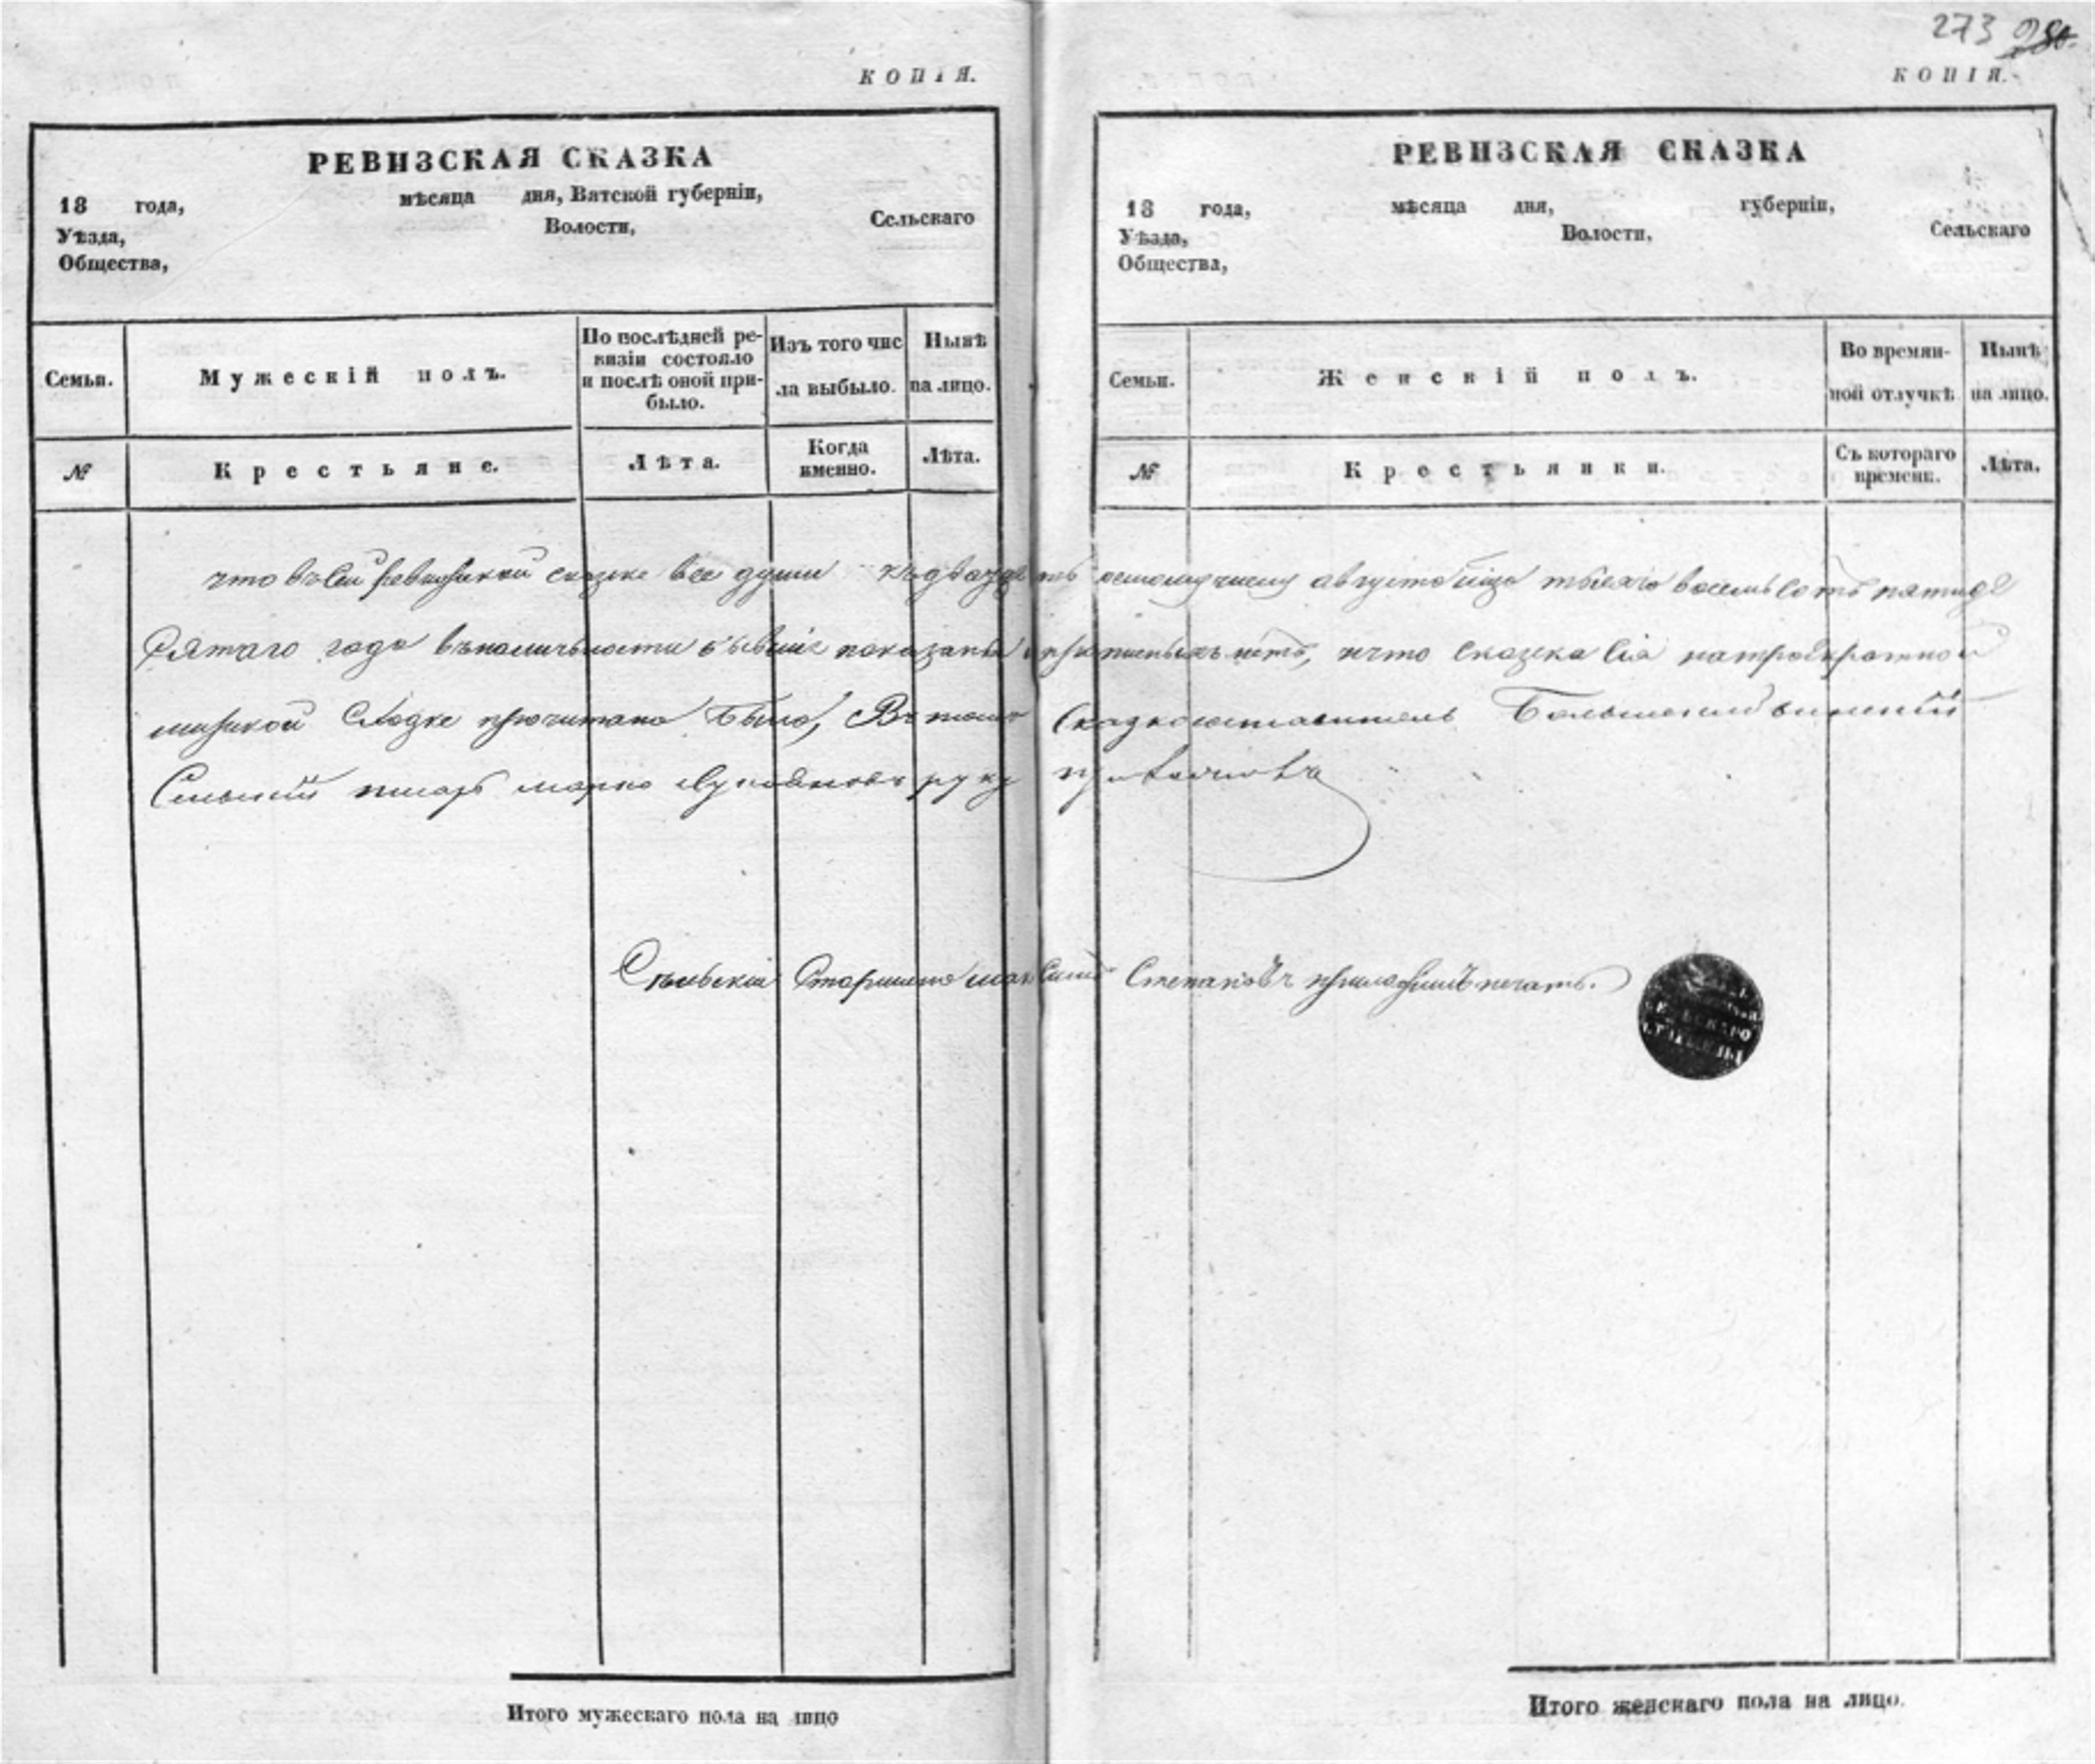 273
КОПІЯ.
РЕВИЗСКАЯ СКАЗКА
18 года, мѣсяца дня, Вятской губерніи,
Уѣзда, Волости, Сельскаго
Общества,
Семьи.
Мужескій полъ.
По послѣдней ре-
визіи состояло
и послѣ оной при-
было.
Изъ того чис
ла выбыло.
Нынѣ
на лицо.
№
Крестьяне.
Лѣта.
Когда
именно.
Лѣта.
КОПІЯ.
РЕВИЗСКАЯ СКАЗКА
18 года, мѣсяца дня, губерніи,
Уѣзда, Волости, Сельскаго
Общества,
Семьи.
Женскій полъ.
Во времян-
ной отлучкѣ
Нынѣ
на лицо.
№
Крестьянки.
Съ котораго
времени.
Лѣта.
что въ сей ревизской сказке все души къ двадцеть осмому числу августа тысяча восемьсотъ пятиде
сятаго года въ наличьности бывшіе показаны и прописныхъ нѣтъ, и что сказка сія на троекратной
мирской сходке прочитана была, Въ томъ сказкосоставитель
Сельскій писарь марко Лукояновъ руку приложилъ
Сельскій Старшина максимъ Степановъ приложилъ печать.
Итого мужескаго пола на лицо
Итого женскаго пола на лицо.